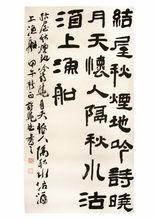 結屋秋煙地吟詩曉
月天懷人隔秋水沽
酒上漁船
結屋秋煙地吟詩曉月天懷人隔秋水沽酒
上漁船 甲午